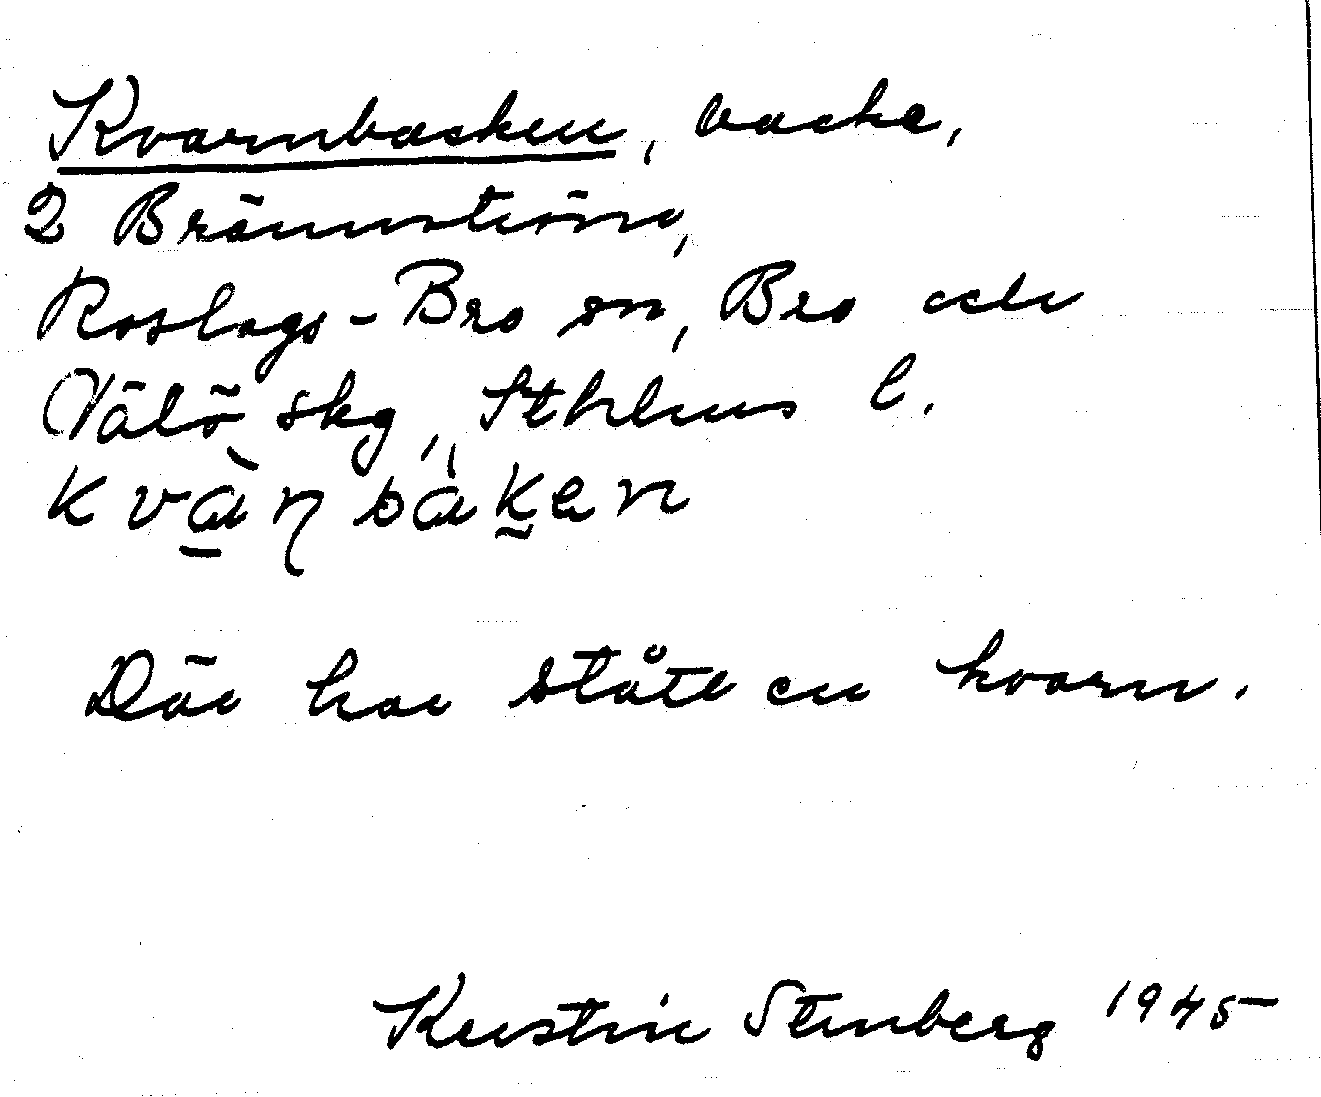 Kvarnbacken, backe,
2 Brännström,
Roslags-Bro sn, Bro och
Vätö skg, Sthlms l.
kvàṇbàken
Där har stått en kvarn.
Kerstin Stenberg 1945